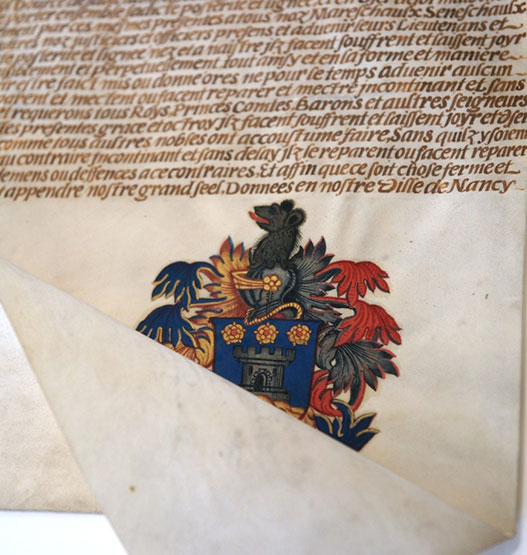 noz justiciers et officiers presens et advenir leurs Lieutenans et
lignee jcz et a naistre jlz facent souffrent et laissent joyr
et perpetuellement tout ainsy et en la forme et maniere
ou donne ores ne pour le temps advenir aulcun
et mectent ou facent reparer et mectre jncontinant et sans
requerons tous Roys, Princes Comtes, Barons et aultres seigneurs
presentes grace et octroy jlz facent souffrent et laissent joyr et
comme tous aultres nobles ont accoustume faire, Sans qu'ilz y soient
au contraire jncontinant et sans delay jlz le reparent ou facent reparer
ou deffences a ce contraires, Et affin que ce soit chose ferme et
appendre nostre grand seel. Donnees en nostre Ville de Nancy